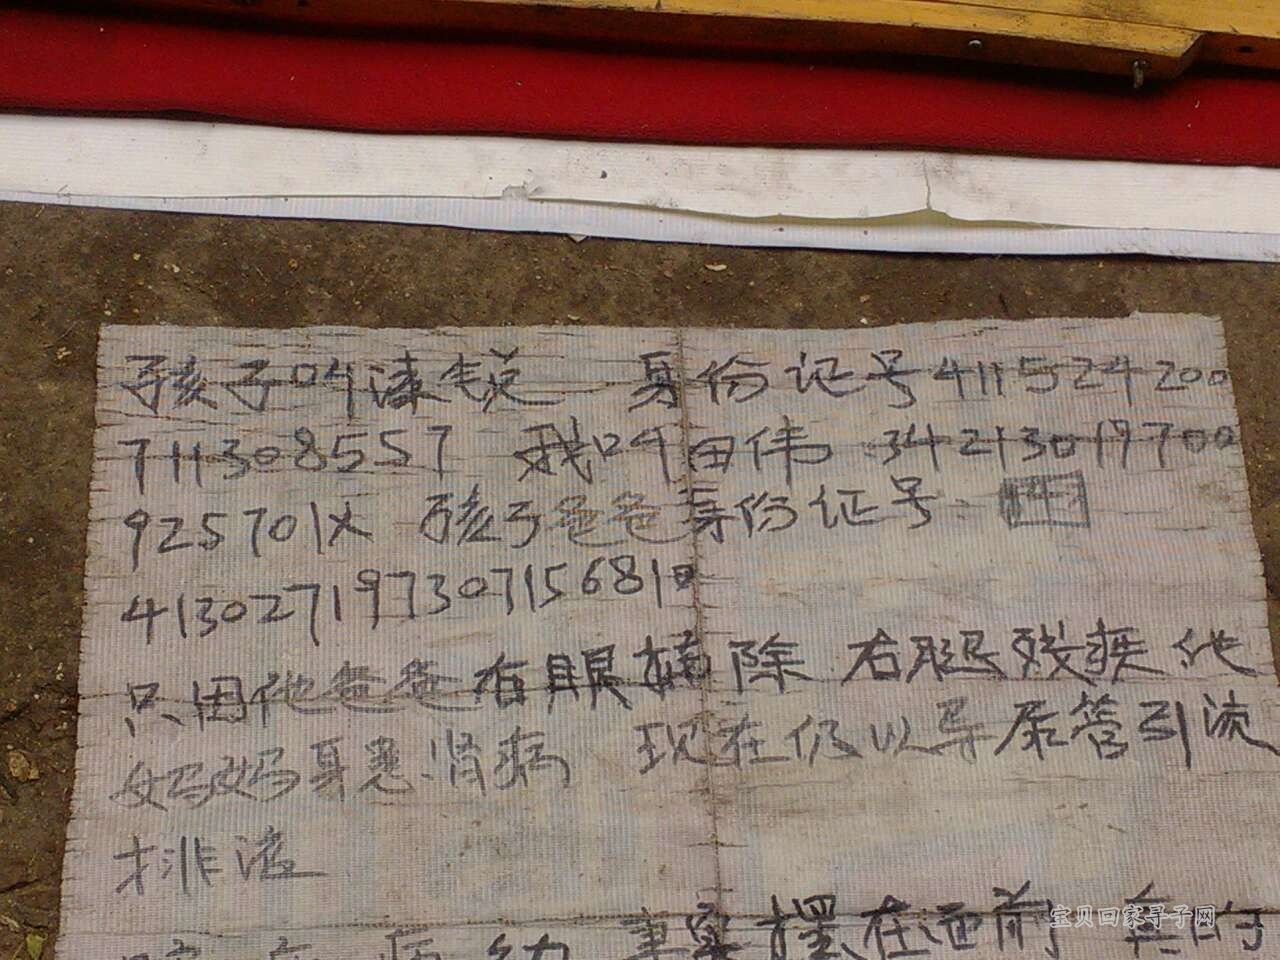 孩子叫漆锐 身份证号411524200
711308557 我叫田伟 34213019700
925701X 孩子爸爸身份证号
413027197307156810
只因他爸爸右眼摘除 右腿残疾 他
妈妈身患肾病 现在仍以导尿管引流
排液
事实摆在面前
宝贝回家寻子网